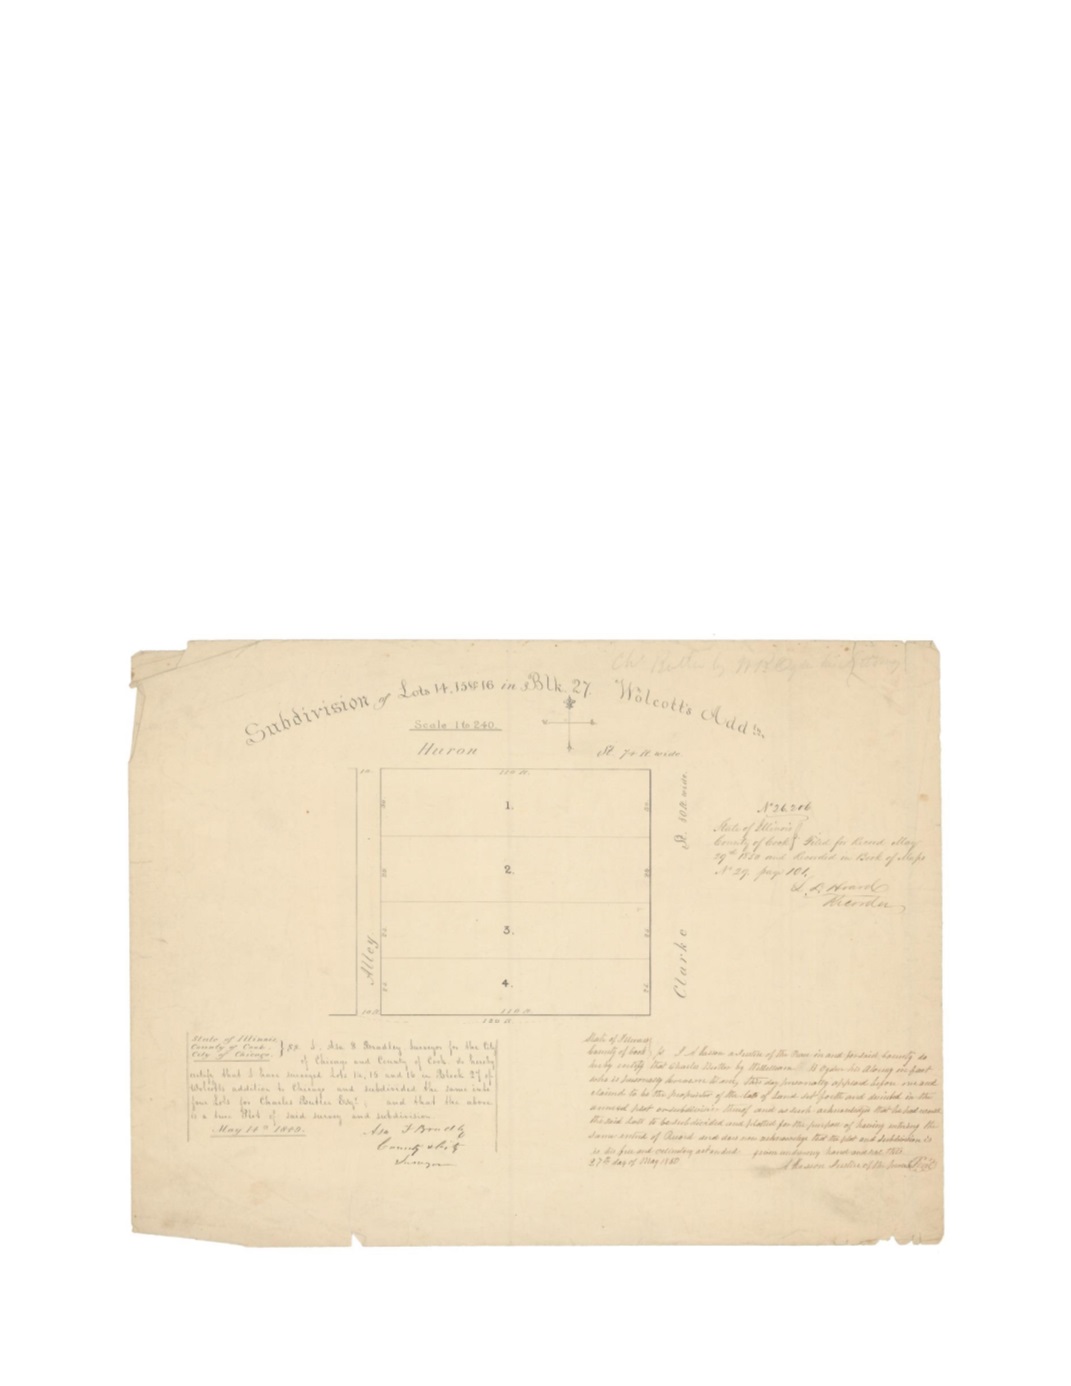 Subdivision of Lots 14, 15 & 16 in Blk. 27. Wolcott's Addtn.
Scale 1 to 240.
Huron St. 74 ft wide.
110 ft.
1.
2.
3.
4.
Alley
10 ft
110 ft.
Clarke St. 80 ft. wide.
No 26,206
State of Illinois
County of Cook } Filed for Record May
29th 1850 and Recorded in Book of Maps
No 29 page 101.
Recorder
State of Illinois
County of Cook
City of Chicago } SS I, Asa F. Bradley Surveyor for the City
of Chicago and County of Cook do hereby
certify that I have surveyed Lots 14, 15 and 16 in Block 27 of
Wolcott's addition to Chicago and subdivided the same into
four Lots for Charles Butler Esqr; and that the above
is a true Plat of said survey and subdivision.
May 10th
Asa F Bradley
County & City
Surveyor
State of Illinois
County of Cook } a Justice of the Peace in and for said County do
hereby certify that Charles Butler by William B Ogden his Attorney in fact
who is personally known to me, this day personally appeared before me and
claimed to be the proprietor of the Lots of Land set forth and divided in the
annexed plat or subdivision thereof and as such acknowledges that he had caused
the said Lots to be subdivided and platted for the purpose of having
same of Record and does now acknowledge that the plat and subdivision is
to be free and given under my hand and seal this
27th day of May 1850
Justice of the peace